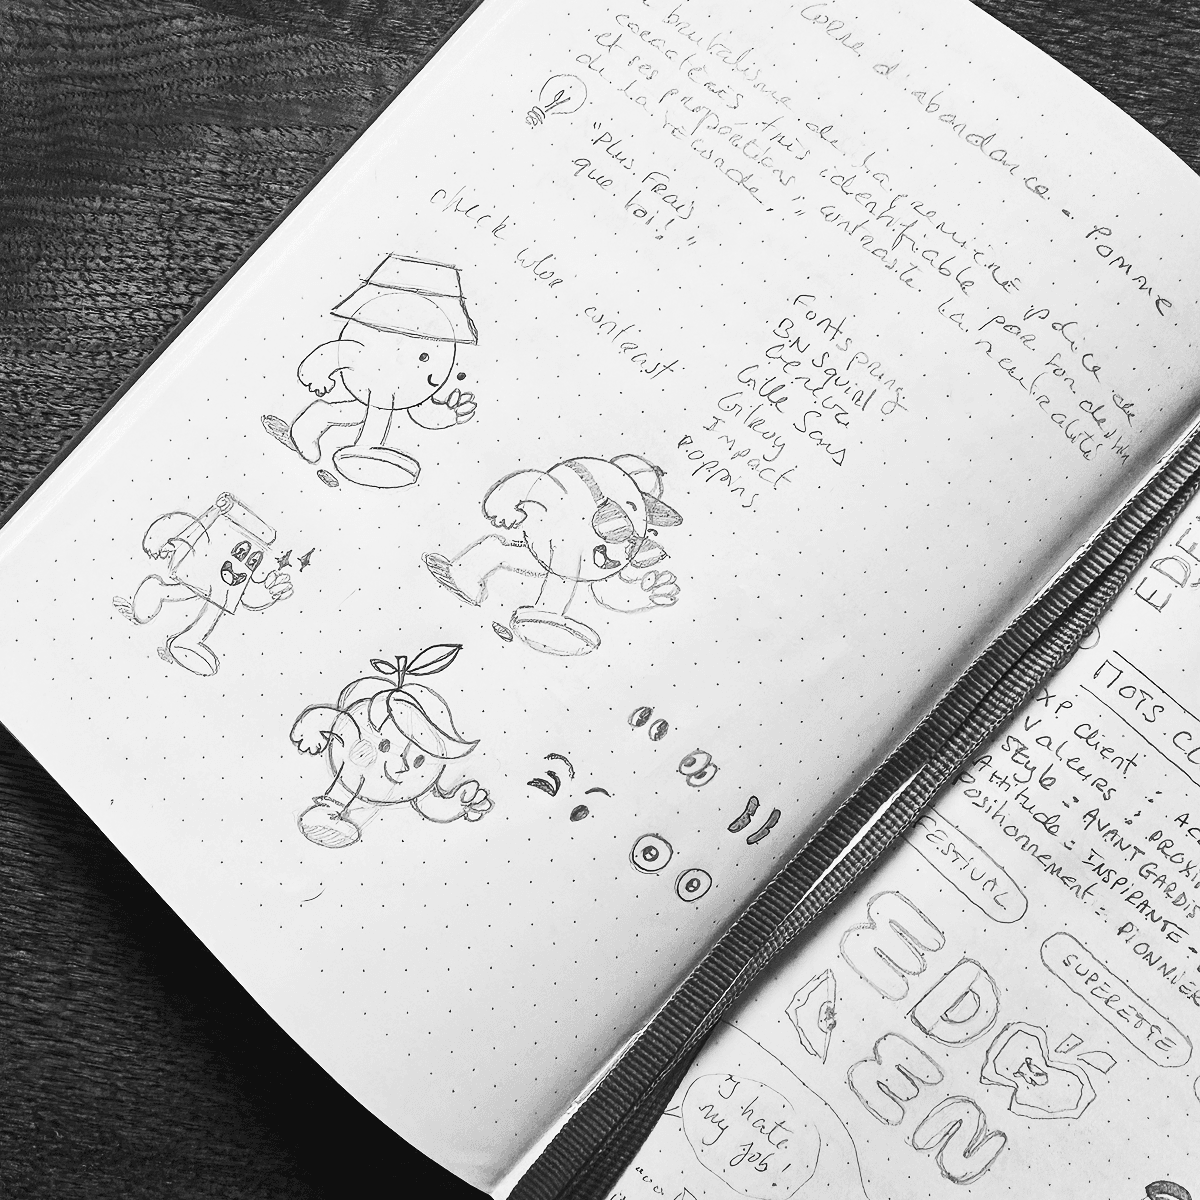 Corne d'abondance - Pomme
brutalisme de la première
caractères très identifiable par son dessin
et ses proportions, contraste la neutralité
de la seconde,
"Plus Frais
que toi!"
check color contrast
Fontspring
BN Squirl
Gille Sans
Gilroy
Impact
Poppins
EDE
MOTS C
XP client :
Valeurs : PROXI
Style : AVANT GARDIS
Attitude : INSPIRANTE -
Positionnement : PIONNIER
FESTIVAL
SUPERETTE
ED
EN
I hate
my job!